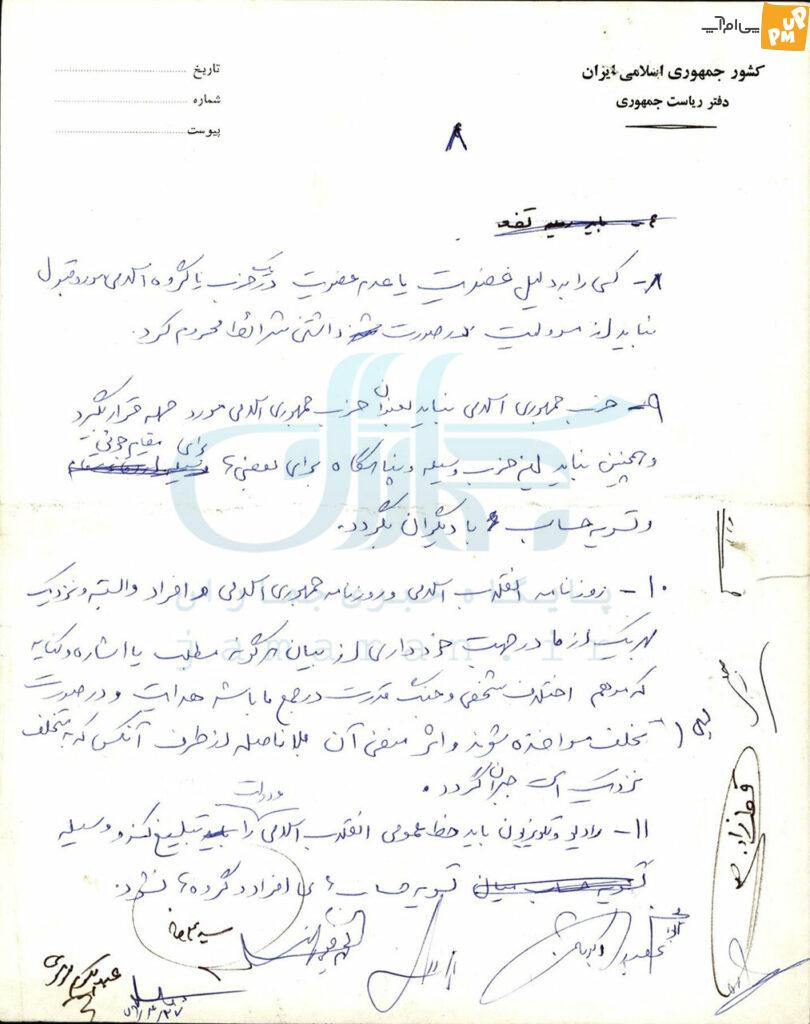 پی‌ام‌آپ
UP
PM
کشور جمهوری اسلامی ایران
دفتر ریاست جمهوری
تاریخ
شماره
پیوست
۸
۸- کسی را به دلیل عضویت یا عدم عضویت در یک حزب یا گروه اسلامی مورد قبول
نباید از مسوولیت در صورت داشتن شرائط محروم کرد.
۹- حزب جمهوری اسلامی نباید بعنوان حزب جمهوری اسلامی مورد حمله قرار بگیرد
و همچنین نباید این حزب وسیله و پناهگاه برای بعضی‌ها برای مقام جوئی
و تسویه حساب با دیگران بگردد.
۱۰- روزنامه انقلاب اسلامی و روزنامه جمهوری اسلامی و افراد وابسته و نزدیک
بهر یک از ما در جهت خودداری از بیان هرگونه مطلب یا اشاره و کنایه
که موهم اختلاف شخصی و جنگ قدرت در جمع ما باشد هدایت و در صورت
تخلف مواخذه شوند و اثر منفی آن بلافاصله از طرف آنکس که به متخلف
نزدیک است جبران گردد.
۱۱- رادیو و تلویزیون باید خط عمومی انقلاب اسلامی را تبلیغ کند و وسیله
تسویه حساب‌های افراد و گروه‌ها نشود.
قطب‌زاده
jamaran.ir